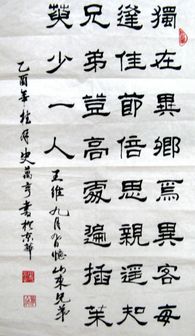 獨在異鄉為異客每
逢佳節倍思親遥知
兄弟登高處遍插茱
萸少一人
王維九月九日憶山東兄弟
乙酉年桂月史萬亨書於京華